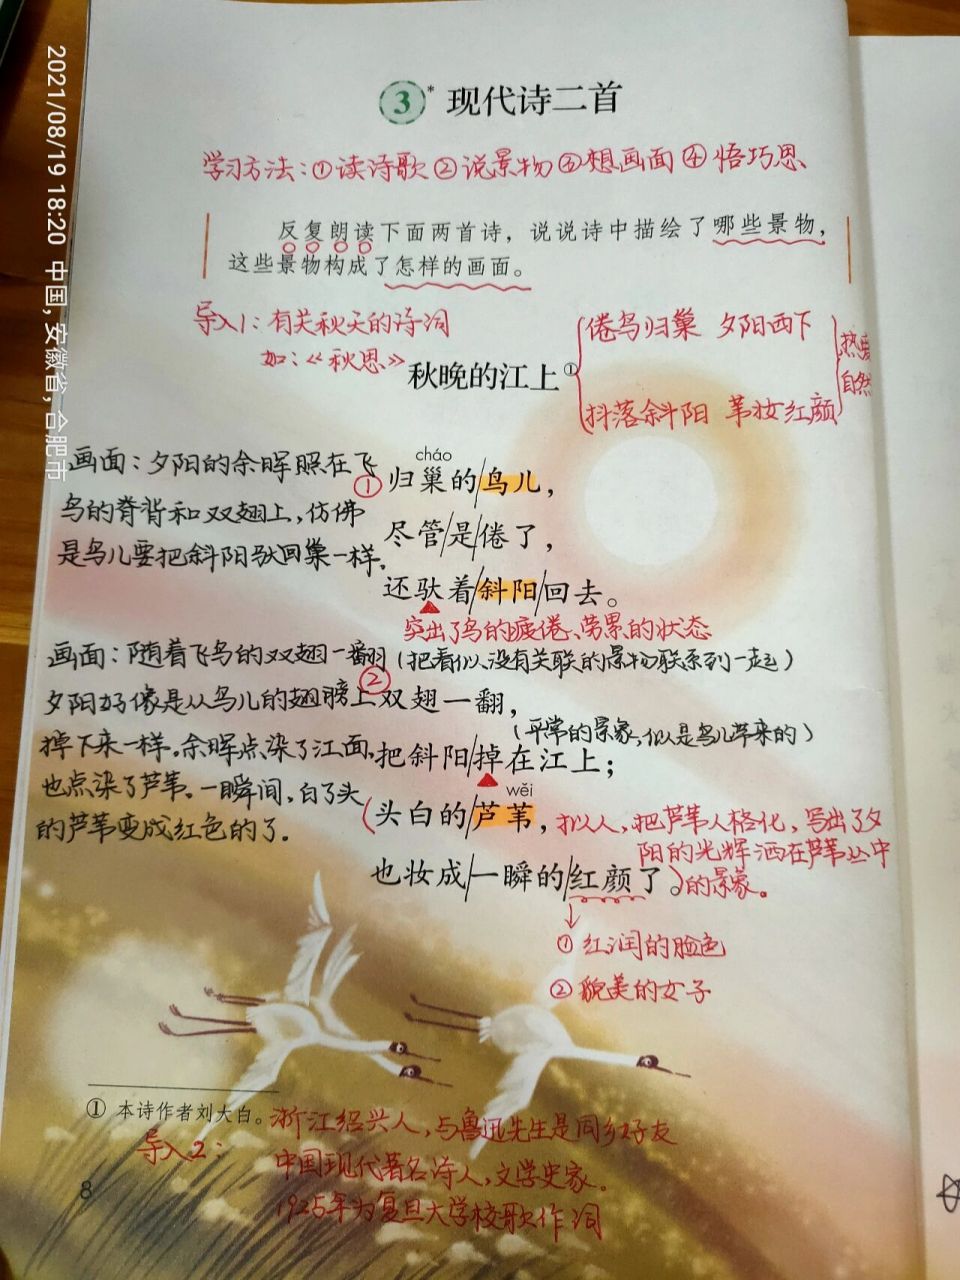 2021/08/19 18:20 中国,安徽省,合肥市
3* 现代诗二首
学习方法:①读诗歌②说景物③想画面④悟巧思
反复朗读下面两首诗，说说诗中描绘了哪些景物，
这些景物构成了怎样的画面。
导入1:有关秋天的诗词
如:《秋思》
秋晚的江上①
倦鸟归巢 夕阳西下
抖落斜阳 苇妆红颜
热爱
自然
画面:夕阳的余晖照在飞
鸟的脊背和双翅上,仿佛
是鸟儿要把斜阳驮回巢一样。
cháo
①归巢的/鸟儿，
尽管/是/倦了，
还驮着/斜阳/回去。
突出了鸟的疲倦、劳累的状态
画面:随着飞鸟的双翅一翻
(把看似没有关联的景物联系到一起)
夕阳好像是从鸟儿的翅膀上
掉下来一样。余晖点染了江面,
也点染了芦苇。一瞬间,白了头
的芦苇变成红色的了。
②双翅一翻，
(平常的景象,似是鸟儿带来的)
把斜阳/掉在江上；
wěi
(头白的/芦苇，
也妆成/一瞬的/红颜了。)
拟人,把芦苇人格化,写出了夕
阳的光辉洒在芦苇丛中
的景象。
①红润的脸色
②貌美的女子
① 本诗作者刘大白。
浙江绍兴人,与鲁迅先生是同乡好友
导入2:
中国现代著名诗人,文学史家。
1925年为复旦大学校歌作词
8